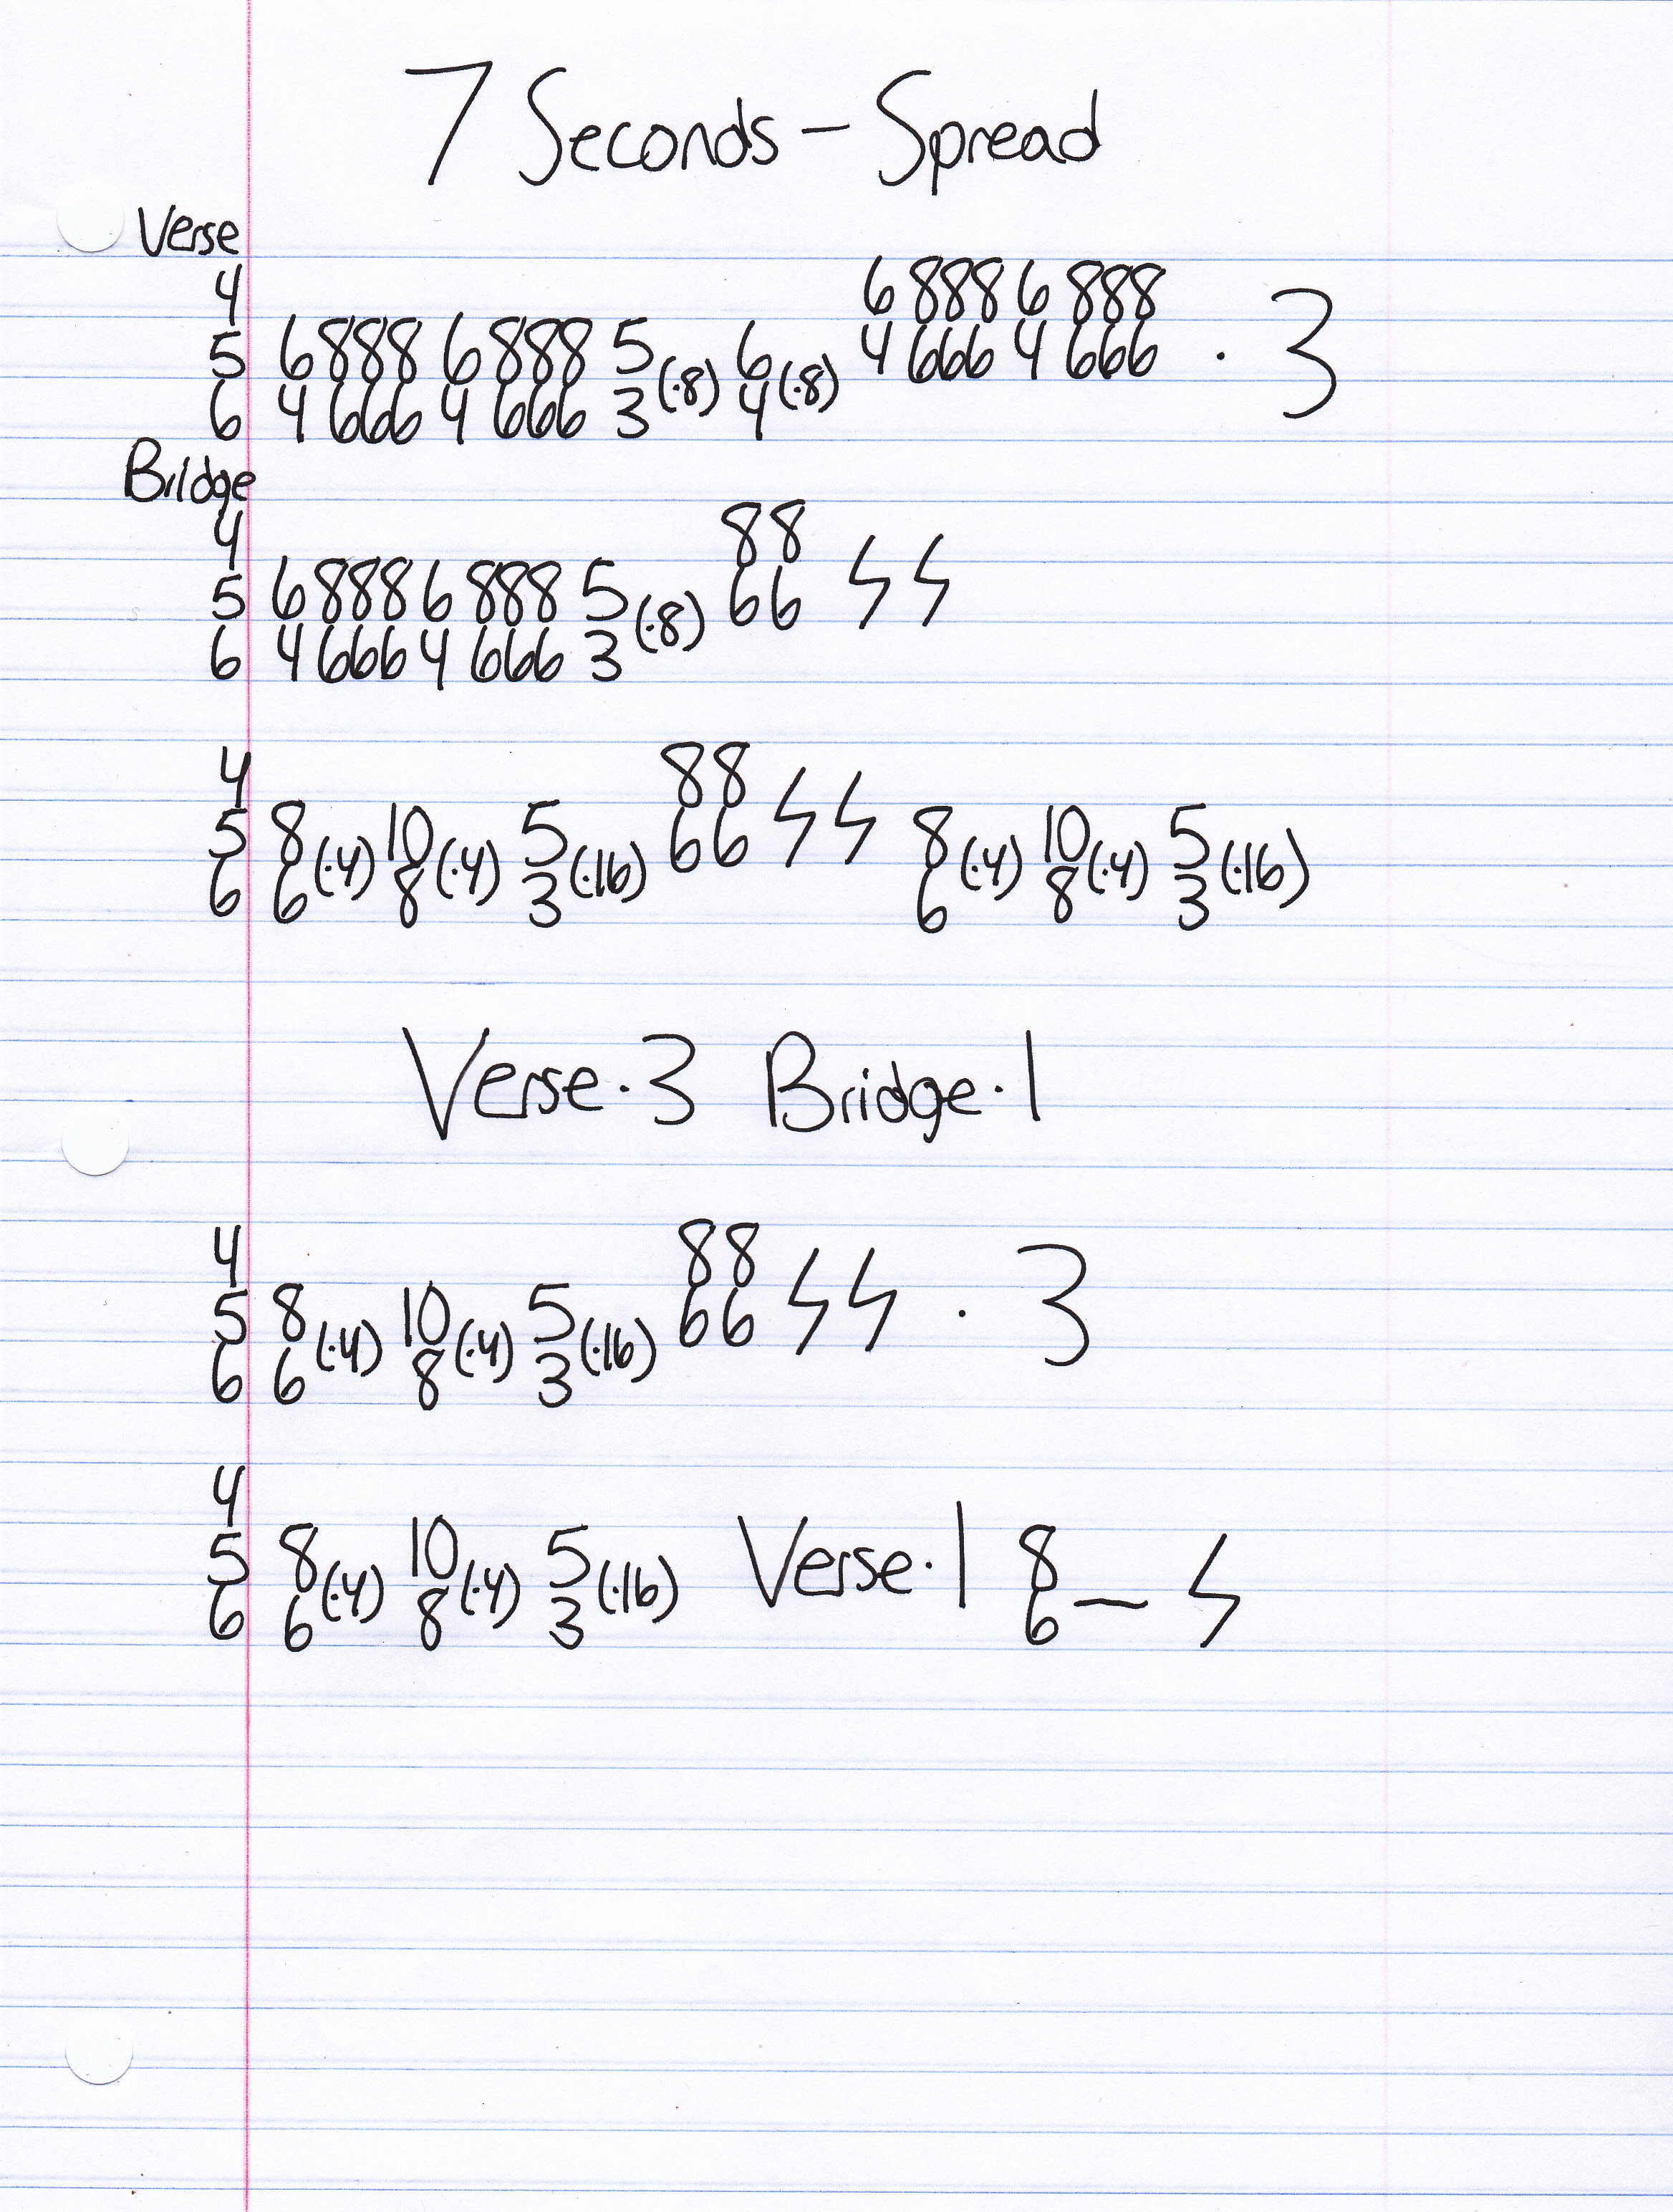 7 Seconds – Spread
Verse
4 6 888 6 888
5 6 888 6 888 5 (·8) 6 (·8) 4 666 4 666 · 3
6 4 666 4 666 3 4
Bridge
4 88
5 6 888 6 888 5 (·8) 66 ϟ ϟ
6 4 666 4 666 3
4 88
5 8 (·4) 10 (·4) 5 (·16) 66 ϟ ϟ 8 (·4) 10 (·4) 5 (·16)
6 6 8 3 6 8 3
Verse · 3 Bridge · 1
4 88
5 8 (·4) 10 (·4) 5 (·16) 66 ϟ ϟ · 3
6 6 8 3
4
5 8 (·4) 10 (·4) 5 (·16) Verse · 1 8 — ϟ
6 6 8 3 6